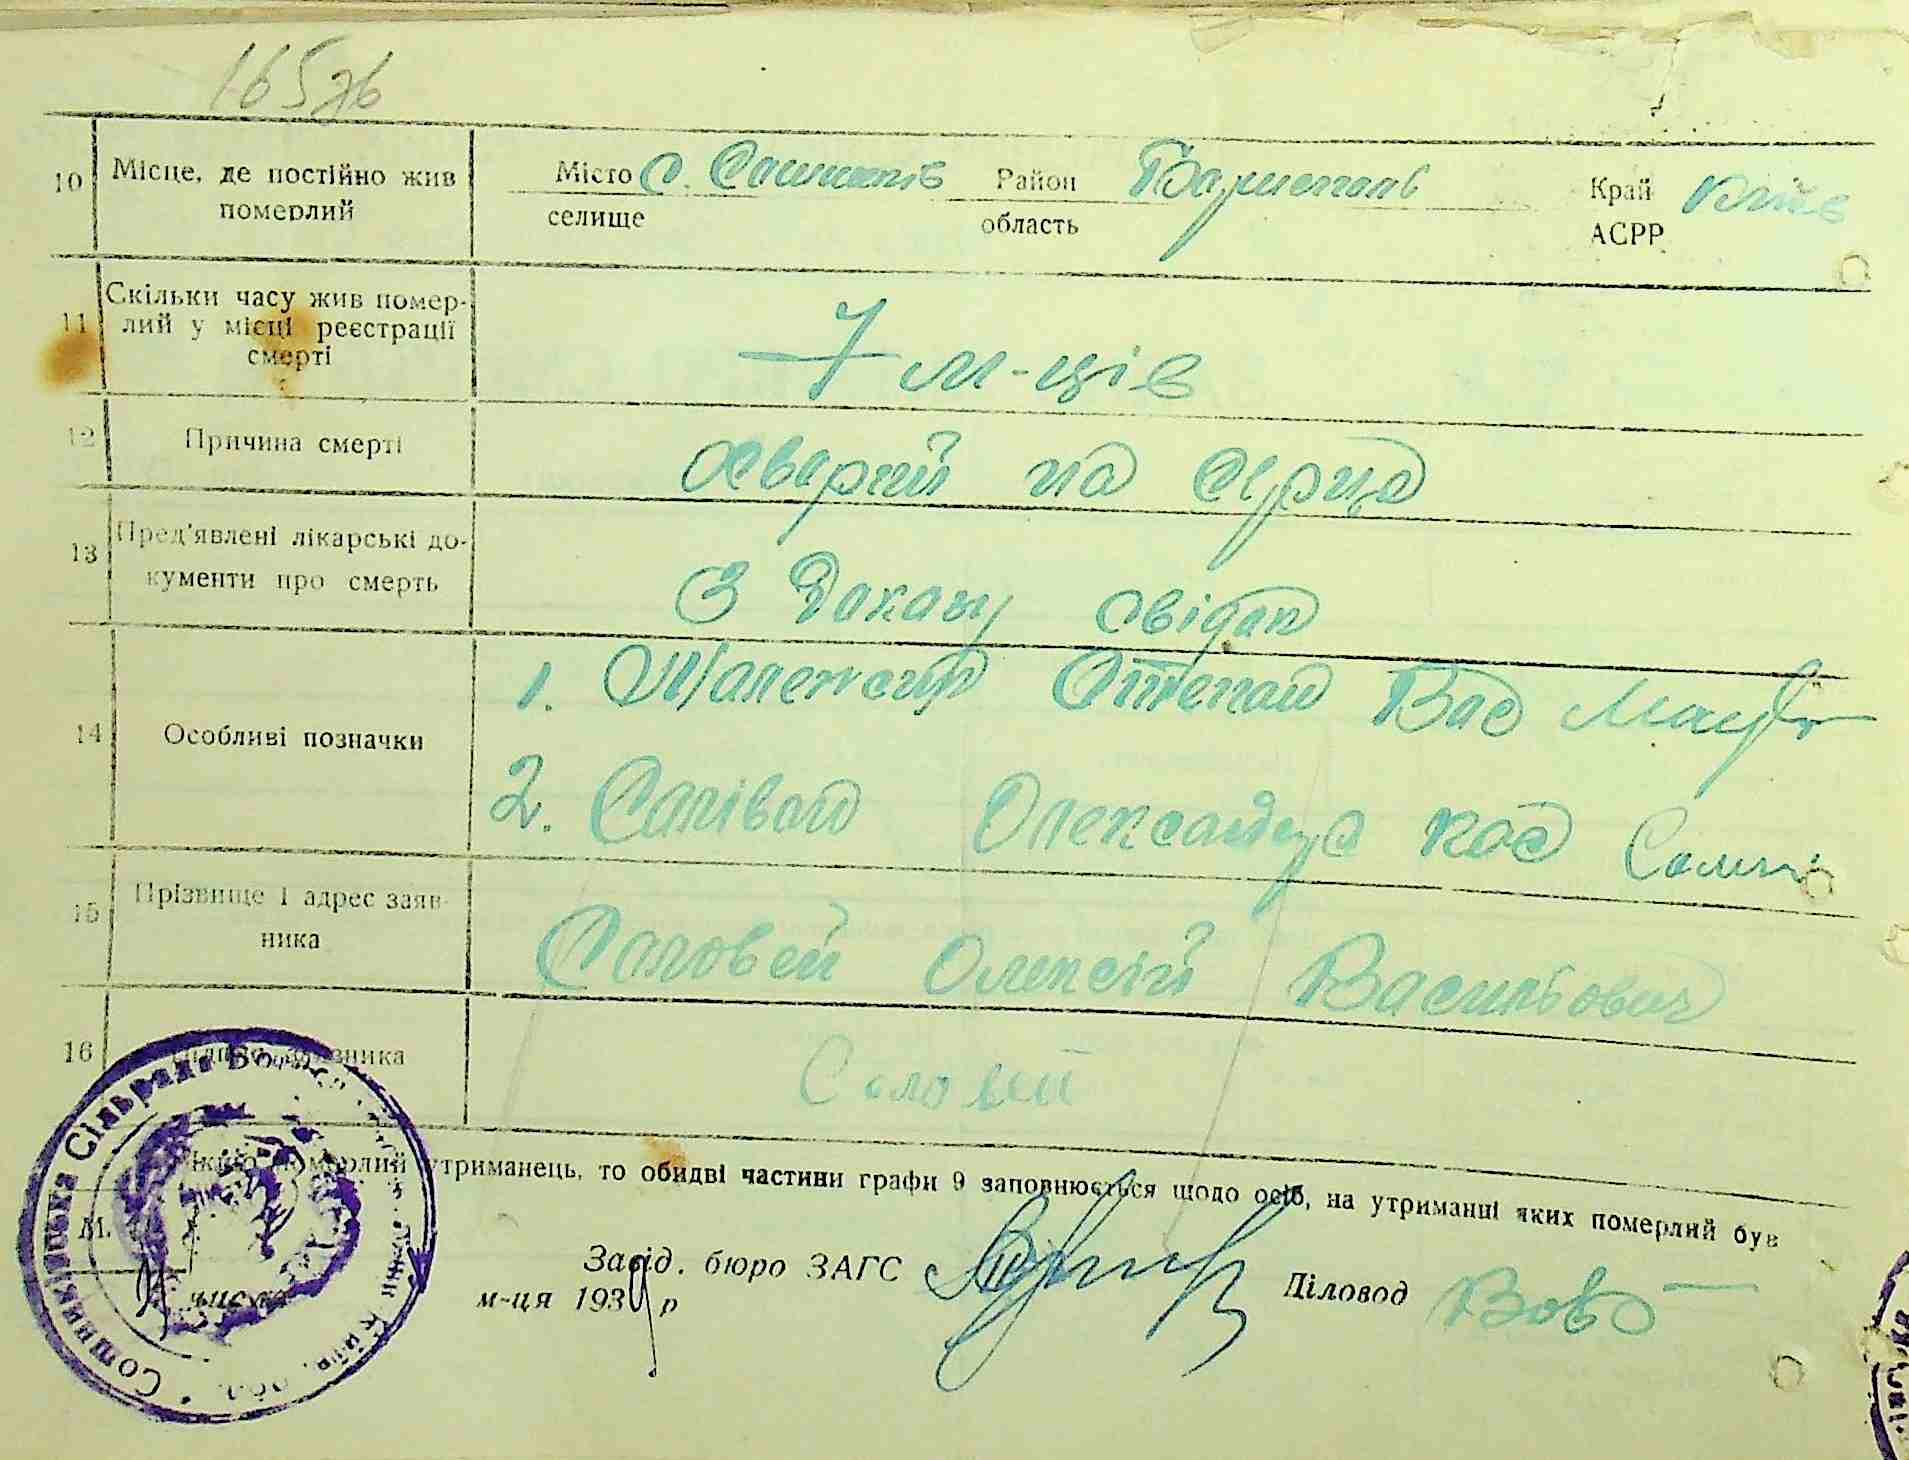 165зв
10 Місце, де постійно жив померлий Місто с. Сошників Район Бариспіль Край Київ
селище область АСРР
11 Скільки часу жив помер-
лий у місці реєстрації
смерті
7 м-ців
12 Причина смерті
хворий на серце
13 Пред'явлені лікарські до-
кументи про смерть
З доказу свідків
14 Особливі позначки
1. Степан Вас
2. Солівой Олександра
15 Прізвище і адрес заяв-
ника
Соловей Олексій Васильович
16 Підпис заявника
Соловей
Якщо померлий утриманець, то обидві частини графи 9 заповнюється щодо осіб, на утриманні яких померлий був
М.
Завід. бюро ЗАГС Діловод
числа м-ця 1934 р
Сошниківська Сільрада Київ. обл.